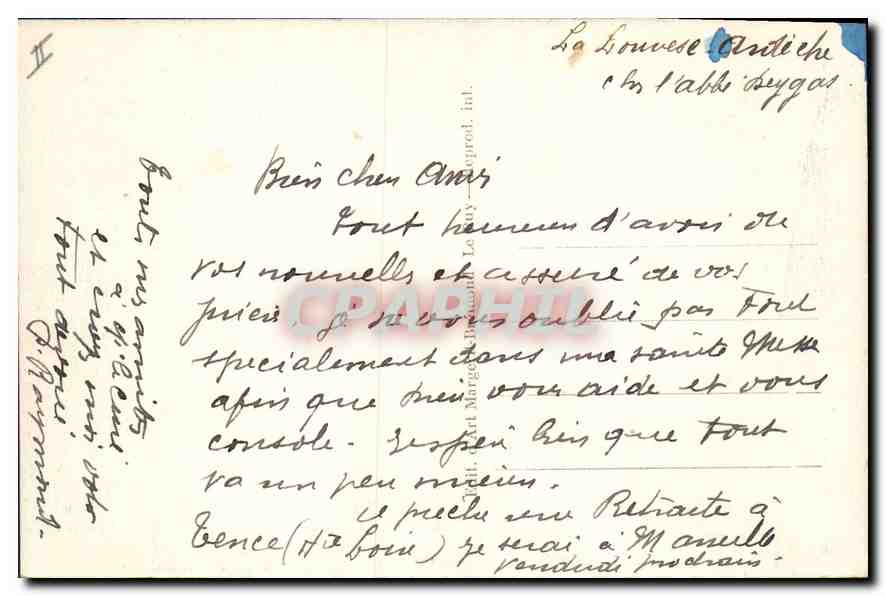 II
La Louvesc - Ardèche
chez l'abbé Deygas
Bien cher Ami
Tout heureux d'avoir de
vos nouvelles et assuré de vos
prières, je ne vous oublie pas tout
spécialement dans ma sainte Messe
afin que Dieu vous aide et vous
console. J'espère bien que tout
va un peu mieux.
Je prêche une Retraite à
Tence (Hte Loire) je serai à
vendredi prochain.
toutes mes amitiés
à M. le Curé
et croyez moi votre
tout dévoué
Raymond
Edit. d'Art Margerit-Brémond - Le Puy - Reprod. int.
CPAPHIL